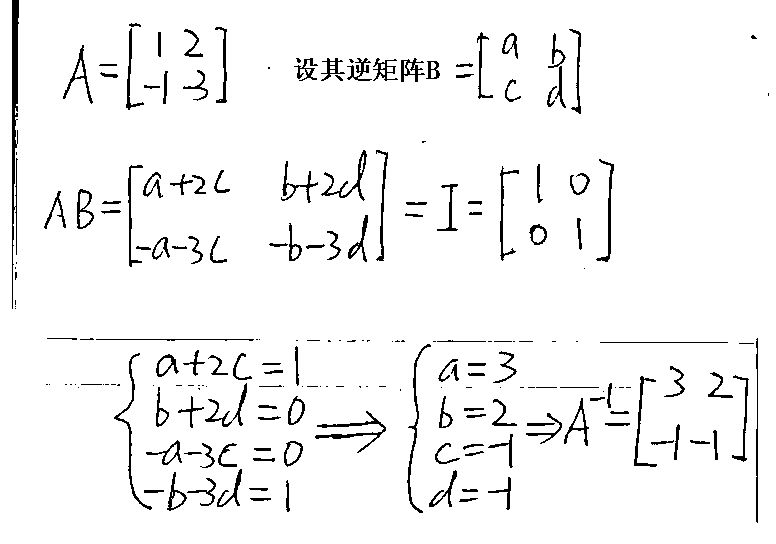 A=[1 2 -1 -3] 设其逆矩阵B =[a b c d]
AB=[a+2c b+2d -a-3c -b-3d]=I=[1 0 0 1]
{a+2c=1 b+2d=0 -a-3c=0 -b-3d=1 ⟹ {a=3 b=2 c=-1 d=-1 ⇒A⁻¹=[3 2 -1 -1]